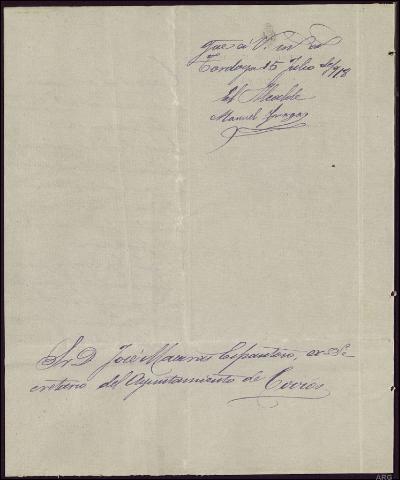 que a V. m. a.
Tordoya 15 Julio de 1918
El Alcalde
Manuel Fraga
Sr. D. José Macenas Espantoso, ex-Se-
cretario del Ayuntamiento de
ARG